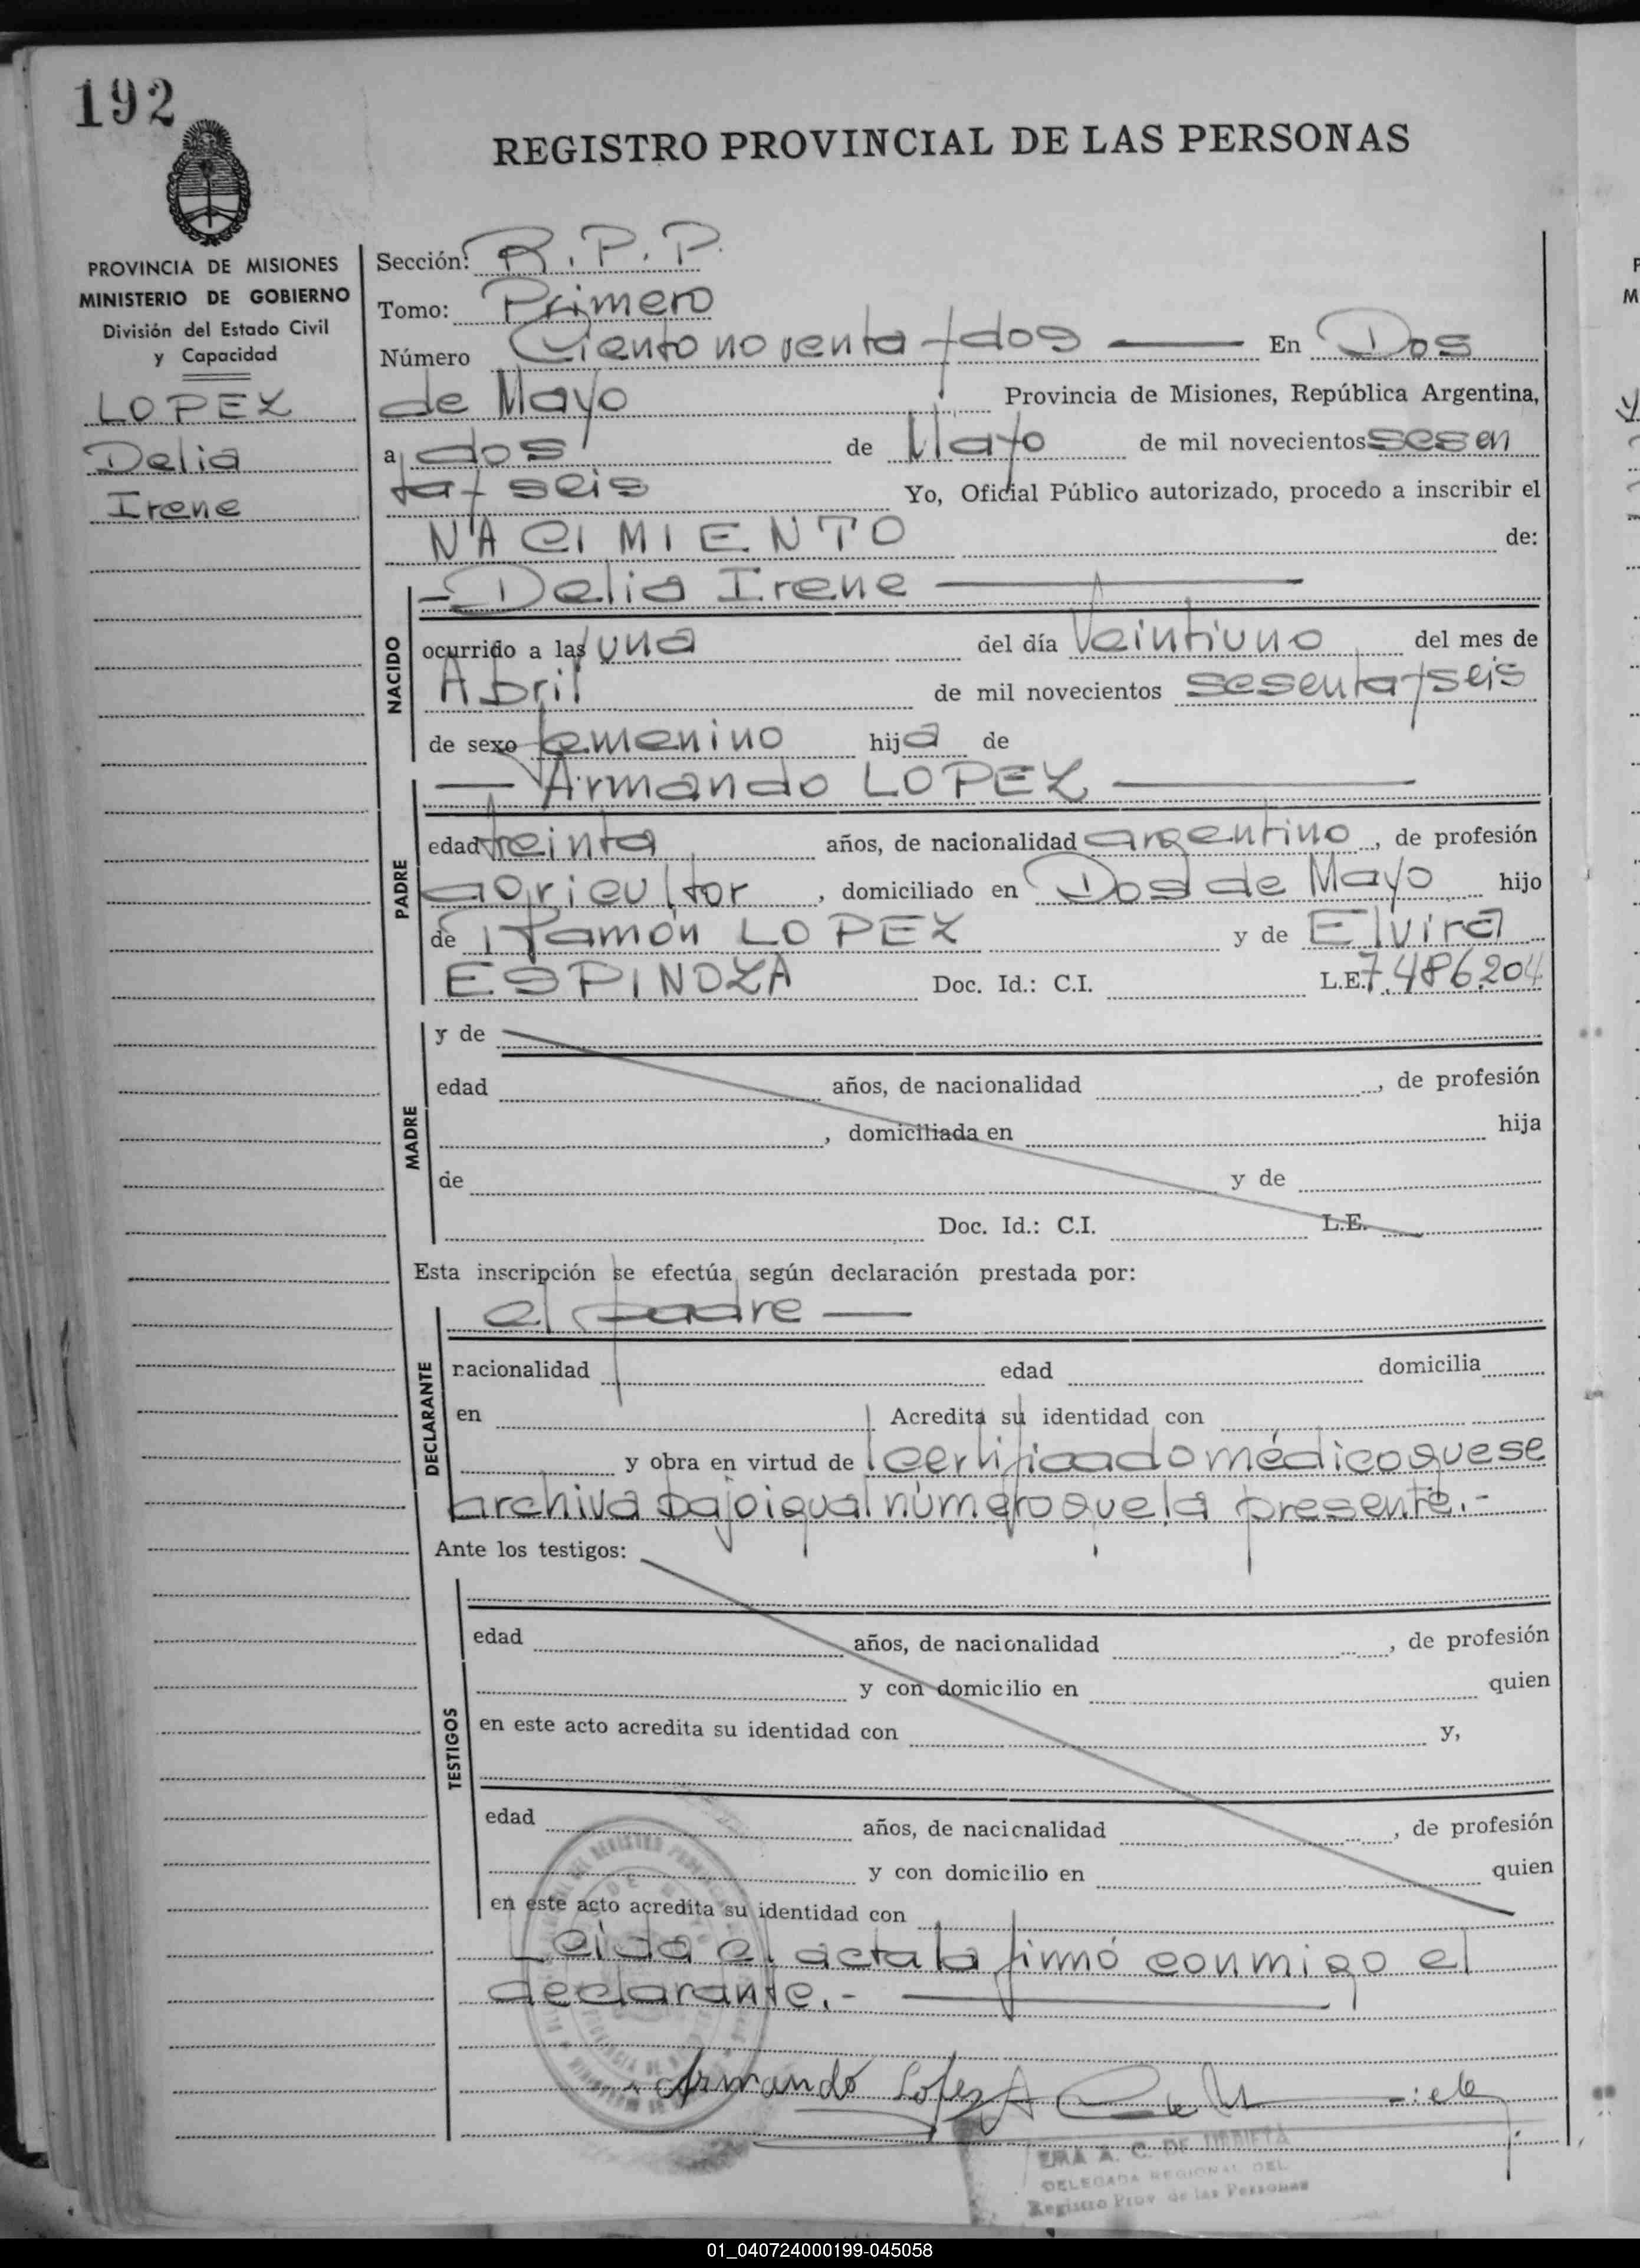 192
REGISTRO PROVINCIAL DE LAS PERSONAS
PROVINCIA DE MISIONES
MINISTERIO DE GOBIERNO
División del Estado Civil
y Capacidad
LOPEZ
Delia
Irene
Sección: R.P.P.
Tomo: Primero
Número Ciento noventa y dos — En Dos
de Mayo Provincia de Misiones, República Argentina,
a dos de Mayo de mil novecientos sesen
ta y seis Yo, Oficial Público autorizado, procedo a inscribir el
NACIMIENTO de:
- Delia Irene —
NACIDO
ocurrido a las una del día Veintiuno del mes de
Abril de mil novecientos sesenta y seis
de sexo femenino hija de
— Armando LOPEZ —
PADRE
edad treinta años, de nacionalidad argentino, de profesión
agricultor, domiciliado en Dos de Mayo hijo
de Ramón LOPEZ y de Elvira
ESPINOZA Doc. Id.: C.I. L.E. 7.486.204
MADRE
y de
edad años, de nacionalidad , de profesión
, domiciliada en hija
de y de
Doc. Id.: C.I. L.E.
Esta inscripción se efectúa según declaración prestada por:
el padre —
DECLARANTE
nacionalidad edad domicilia
en Acredita su identidad con
y obra en virtud de certificado médico que se
archiva bajo igual número que la presente.-
Ante los testigos:
TESTIGOS
edad años, de nacionalidad , de profesión
y con domicilio en quien
en este acto acredita su identidad con y,
edad años, de nacionalidad , de profesión
y con domicilio en quien
en este acto acredita su identidad con
Leida el acta la firmó conmigo el
declarante.- —
Armando Lopez
A. C. DE
DELEGADA REGIONAL DEL
Registro Prov de las Personas
01_040724000199-045058